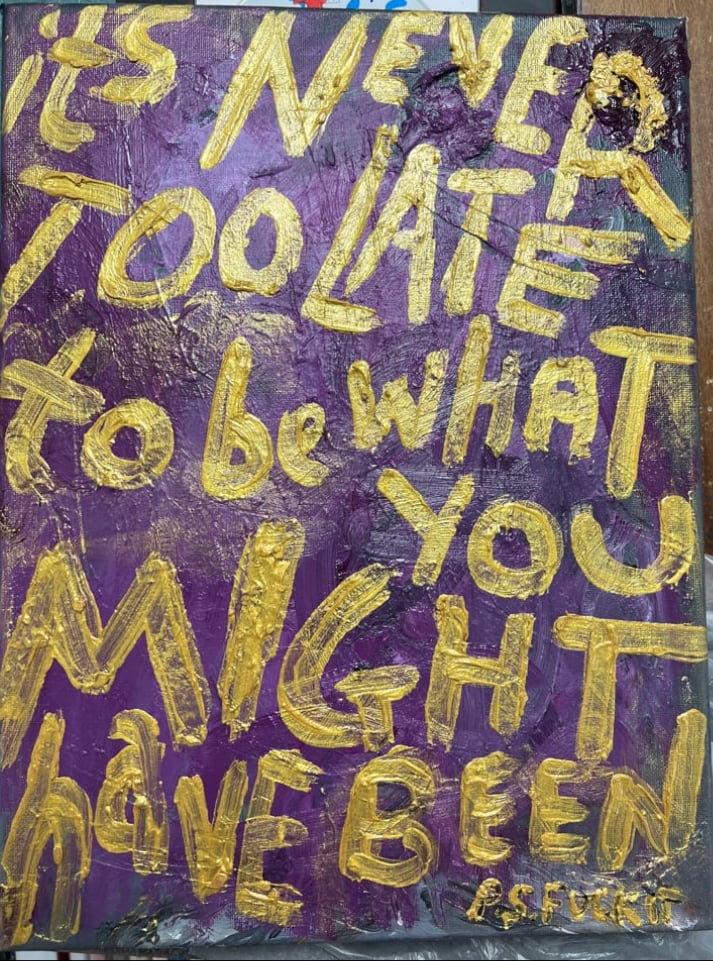 itS NEVER
TOO LATE
to be WHAT
YOU
MIGHT
haVE BEEN
P.S. FUCK IT